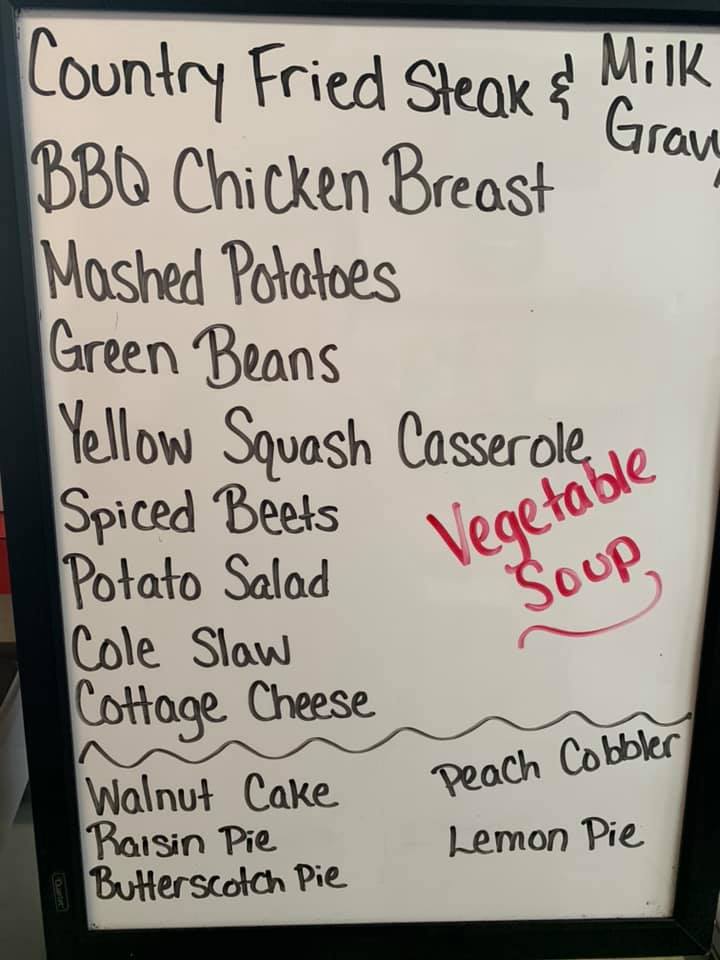 Country Fried Steak & Milk
Gravy
BBQ Chicken Breast
Mashed Potatoes
Green Beans
Yellow Squash Casserole
Vegetable
Soup
Spiced Beets
Potato Salad
Cole Slaw
Cottage Cheese
Walnut Cake
Peach Cobbler
Raisin Pie
Lemon Pie
Butterscotch Pie
Quartet